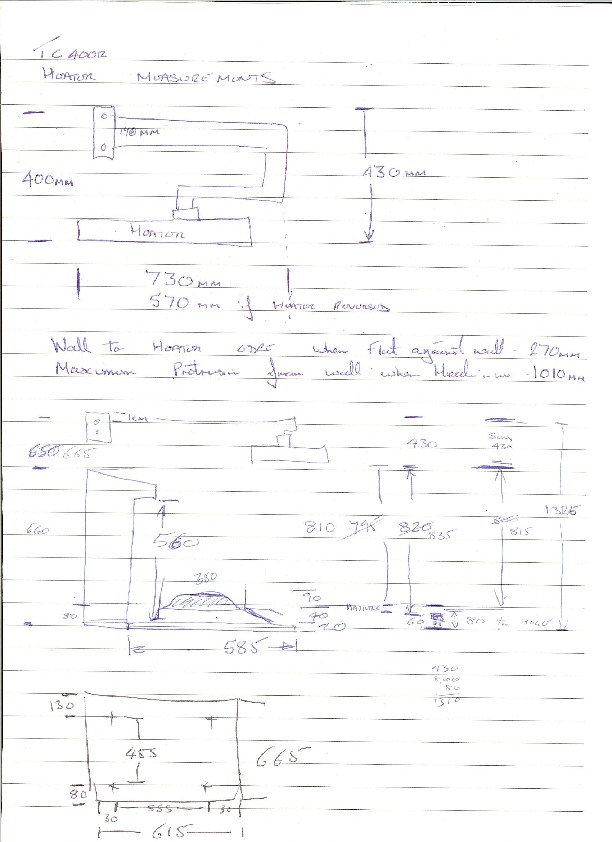 TC400R
HEATER MEASUREMENTS
140MM
400MM
430MM
HEATER
730MM
570MM if HEATER REVERSED
Wall to HEATER CORE when Flat against wall - 270MM
Maximum Protrusion from wall when Head in use - 1010MM
650 665
430
Say 430
1325
660
560
810 795 820 835
815
360
80
90
40
20
MAXIMUM
60
80
585
430
80
1310
130
455
665
80
30 555 30
615